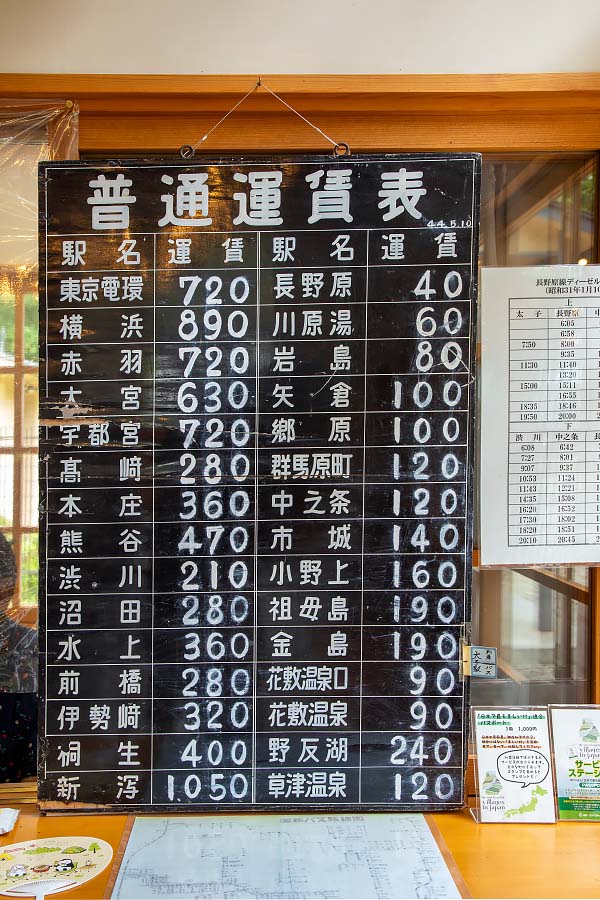 普通運賃表
44.5.10
駅名 運賃 駅名 運賃
東京電環 720 長野原 40
横浜 890 川原湯 60
赤羽 720 岩島 80
大宮 630 矢倉 100
宇都宮 720 郷原 100
高崎 280 群馬原町 120
本庄 360 中之条 120
熊谷 470 市城 140
渋川 210 小野上 160
沼田 280 祖母島 190
水上 360 金島 190
前橋 280 花敷温泉口 90
伊勢崎 320 花敷温泉 90
桐生 400 野反湖 240
新潟 1050 草津温泉 120
長野原線ディーゼル
(昭和31年1月10
上
太子 長野原 中
6:05
6:58
7:50 8:00
9:35
11:30 11:40
13:20
15:00 15:11
16:55
18:35 18:46
19:50 20:00
下
渋川 中之条
6:08 6:42
7:27 8:01
9:07 9:37
10:53 11:24
11:43 12:21
14:35 15:08
16:20 16:52
17:30 18:02
18:20 18:51
20:10 20:45
「日本で最も美しい村」連合
パスポート
1冊 1,000円
villages
in japan
サービ
ステーシ